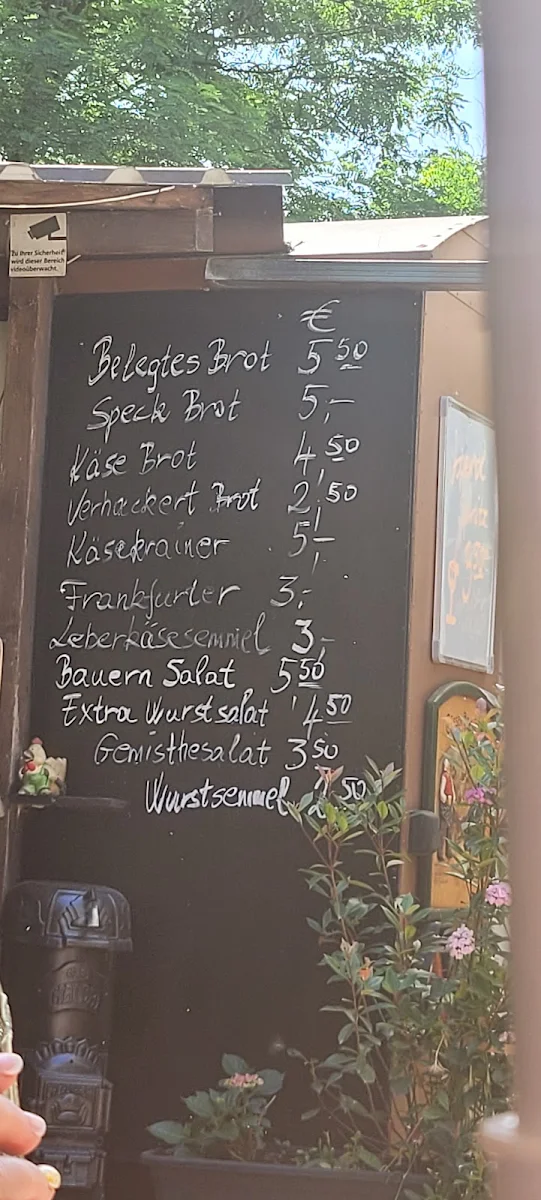 Zu Ihrer Sicherheit
wird dieser Bereich
videoüberwacht.
€
Belegtes Brot 5 50
Speck Brot 5,-
Käse Brot 4,50
Verhackert Brot 2,50
Käsekrainer 5,-
Frankfurter 3,-
Leberkäsesemmel 3,-
Bauern Salat 5 50
Extra Wurstsalat 4 50
Gemisthesalat 3 50
Wurstsemmel 50